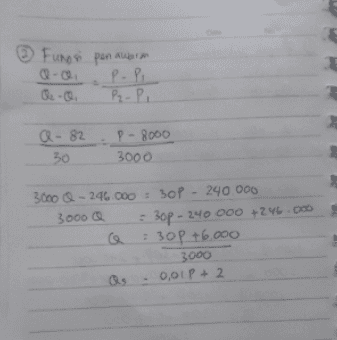 ② Fungsi penawaran
Q - Q₁ / Q₂ - Q₁ = P - P₁ / P₂ - P₁
Q - 82 / 30 = P - 8000 / 3000
3000 Q - 246.000 = 30P - 240 000
3000 Q = 30P - 240 000 + 246.000
Q = 30P + 6.000 / 3000
Qs = 0,01P + 2